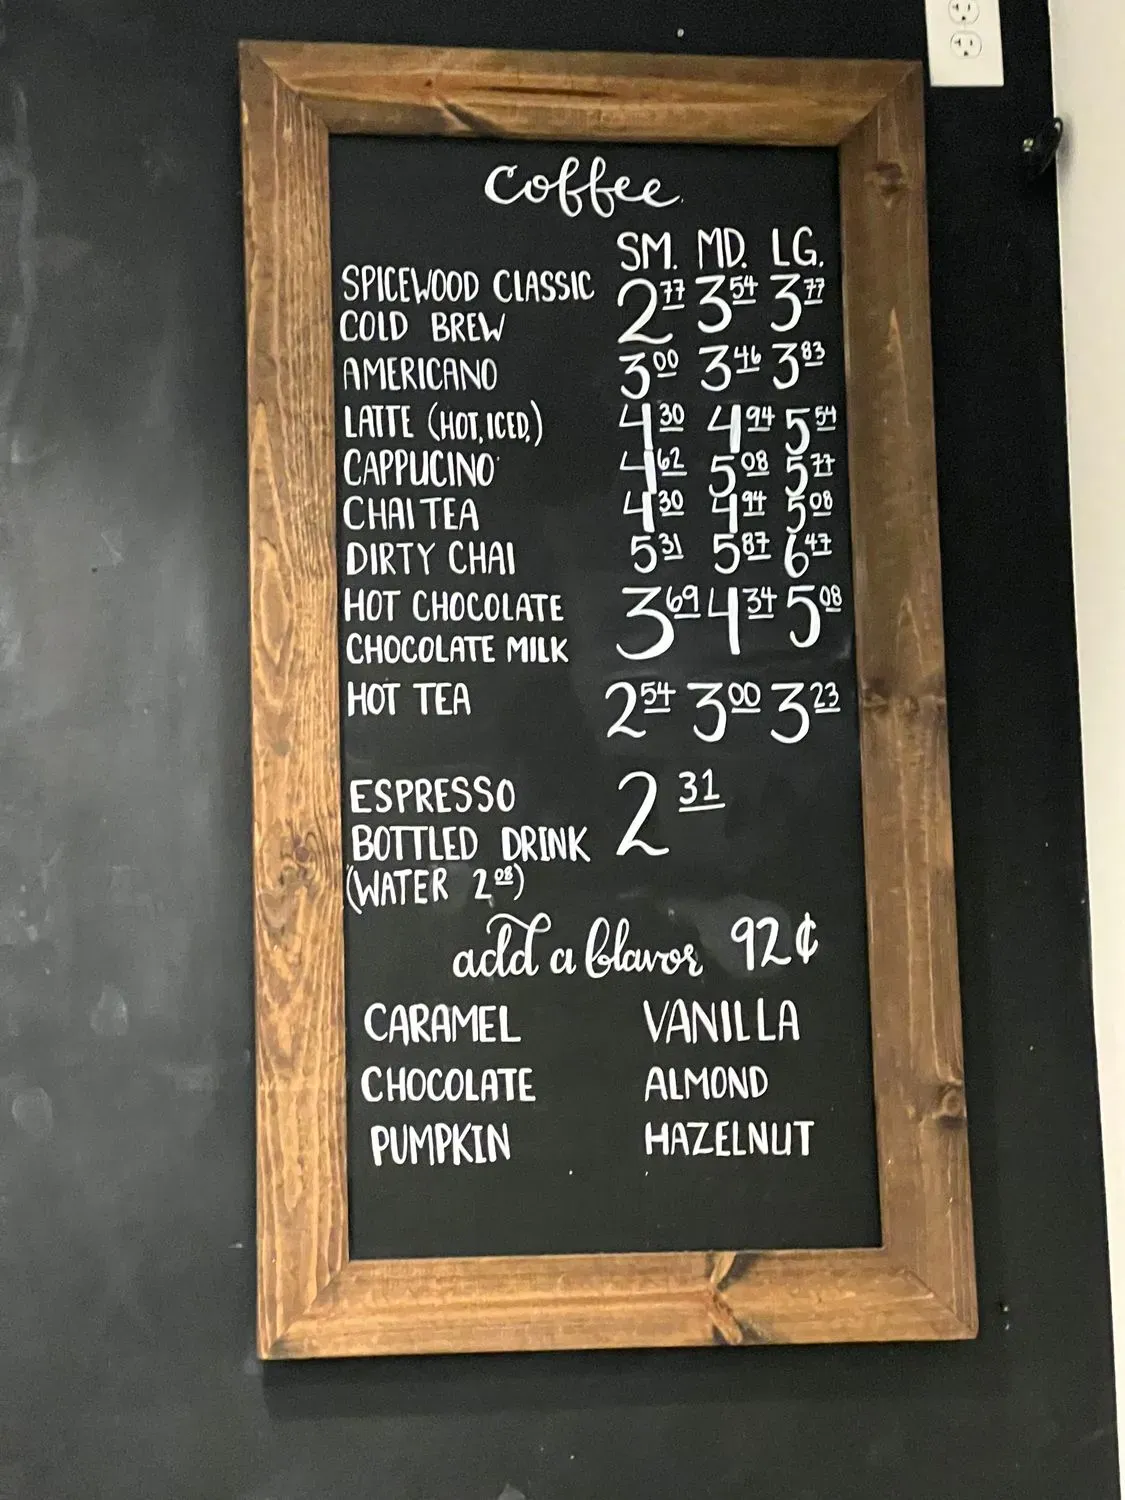 coffee
SM. MD. LG.
SPICEWOOD CLASSIC
COLD BREW 2.77 3.54 3.77
AMERICANO 3.00 3.46 3.83
LATTE (HOT, ICED,) 4.30 4.94 5.54
CAPPUCINO 4.62 5.08 5.77
CHAI TEA 4.30 4.94 5.08
DIRTY CHAI 5.31 5.87 6.47
HOT CHOCOLATE 3.69 4.34 5.08
CHOCOLATE MILK
HOT TEA 2.54 3.00 3.23
ESPRESSO 2.31
BOTTLED DRINK
(WATER 2.08)
add a flavor 92¢
CARAMEL VANILLA
CHOCOLATE ALMOND
PUMPKIN HAZELNUT